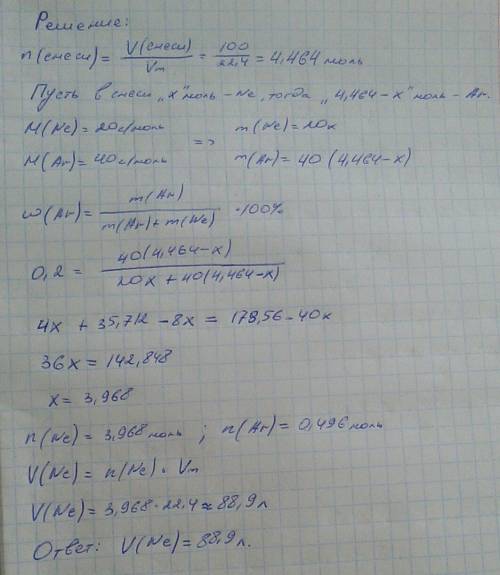 Решение:
n(смеси) = V(смеси)/Vm = 100/22,4 = 4,464 моль
Пусть в смеси „x" моль - Ne, тогда „4,464-x" моль - Ar.
M(Ne) = 20г/моль => m(Ne) = 20x
M(Ar) = 40г/моль m(Ar) = 40(4,464-x)
ω(Ar) = m(Ar)/(m(Ar)+m(Ne)) · 100%
0,2 = 40(4,464-x)/(20x+40(4,464-x))
4x + 35,712 - 8x = 178,56 - 40x
36x = 142,848
x = 3,968
n(Ne) = 3,968 моль ; n(Ar) = 0,496 моль
V(Ne) = n(Ne) · Vm
V(Ne) = 3,968 · 22,4 ≈ 88,9 л
Ответ: V(Ne) = 88,9 л.